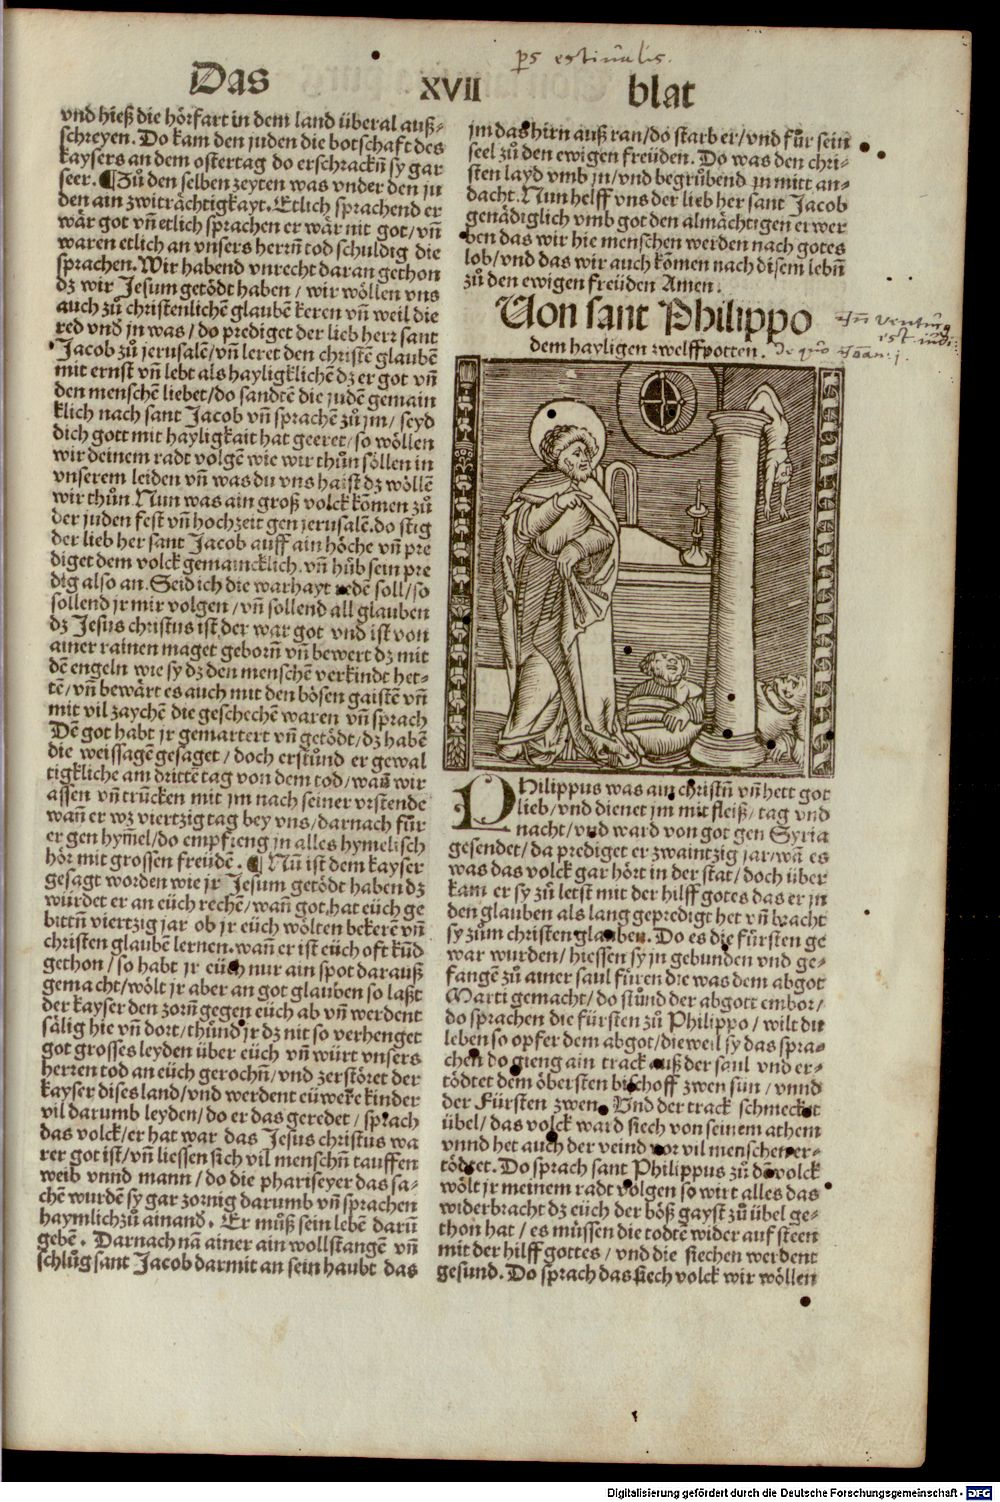 ps estiualis.
Das XVII blat
vnd hieß die hörfart in dem land überal auß⸗
schreyen. Do kam den juden die botschaft des
kaysers an dem ostertag do erschrackn̄ sy gar
seer. ¶Zů den selben zeyten was vnder den ju
den ain zwiträchtigkayt. Etlich sprachend er
wär got vn̄ etlich sprachen er wär nit got/ vn̄
waren etlich an vnsers herrn̄ tod schuldig die
sprachen. Wir habend vnrecht daran gethon
dz wir Jesum getödt haben / wir wöllen vns
auch zů christenlichē glaubē keren vn̄ weil die
red vnd jn was/ do prediget der lieb herr sant
Jacob zů jerusalē/ vn̄ leret den christē glaubē
mit ernst vn̄ lebt als hayligklichē dz er got vn̄
den menschē liebet/ do sandtē die judē gemain
klich nach sant Jacob vn̄ sprachē zů jm/ seyd
dich gott mit hayligkait hat geeret/ so wöllen
wir deinem radt volgē wie wir thůn söllen in
vnserem leiden vn̄ was du vns haist dz wöllē
wir thůn. Nun was ain groß volck kōmen zů
der juden fest vn̄ hochzeit gen jerusalē. do stig
der lieb her sant Jacob auff ain höche vn̄ pre
diget dem volck gemaincklich. vn̄ hůb sein pre
dig also an. Seid ich die warhayt redē soll/ so
sollend jr mir volgen / vn̄ sollend all glauben
dz Jesus christus ist der war got vnd ist von
ainer rainen maget geborn̄ vn̄ bewert dz mit
dē engeln wie sy dz den menschē verkindt het⸗
tē/ vn̄ bewärt es auch mit den bösen gaistē vn̄
mit vil zaychē die geschechē waren vn̄ sprach
Dē got habt jr gemartert vn̄ getödt/ dz habē
die weissagē gesaget / doch erstůnd er gewal
tigkliche am drittē tag von dem tod/ wan̄ wir
assen vn̄ trūcken mit jm nach seiner vrstende
wan̄ er wz viertzig tag bey vns/ darnach fůr
er gen hym̄el/ do empfieng jn alles hymelisch
hör mit grossen freüdē. ¶ Nū ist dem kayser
gesagt worden wie jr Jesum getödt haben dz
würdet er an eüch rechē/ wan̄ got hat eüch ge
bittn̄ viertzig jar ob jr eüch wölten bekerē vn̄
christen glaubē lernen. wan̄ er ist eüch oft kūd
gethon / so habt jr eüch nur ain spot darauß
gemacht/ wölt jr aber an got glauben so laßt
der kayser den zorn̄ gegen eüch ab vn̄ werdent
sälig hie vn̄ dort/ thůnd jr dz nit so verhenget
got grosses leyden über eüch vn̄ würt vnsers
herren tod an eüch gerochn̄/ vnd zerstöret der
kayser dises land/ vnd werdent eüwere kinder
vil darumb leyden/ do er das geredet / sprach
das volck/ er hat war das Jesus christus wa
rer got ist/ vn̄ liessen sich vil menschn̄ tauffen
weib vnnd mann/ do die phariseyer das sa⸗
chē wurdē sy gar zornig darumb vn̄ sprachen
haymlich zů ainand̄. Er můß sein lebē darū
gebē. Darnach nā ainer ain wollstangē vn̄
schlůg sant Jacob darmit an sein haubt das
jm das hirn auß ran/ do starb er/ vnd fůr sein
seel zů den ewigen freüden. Do was den chri⸗
sten layd vmb jn/ vnd begrůbend jn mitt an⸗
dacht. Nun helff vns der lieb her sant Jacob
genädiglich vmb got den almächtigen erwer
ben das wir hie menschen werden nach gotes
lob/ vnd das wir auch kōmen nach disem lebn̄
zů den ewigen freüden Amen.
Uon sant Philippo
dem hayligen zwelffpotten.
Philippus was ain christn̄ vn̄ hett got
lieb/ vnd dienet jm mit fleiß/ tag vnd
nacht/ vnd ward von got gen Syria
gesendet/ da prediget er zwaintzig jar/ wā es
was das volck gar hört in der stat/ doch über
kam er sy zů letst mit der hilff gotes das er jn
den glauben als lang gepredigt het vn̄ bracht
sy zům christen glauben. Do es die fürsten ge
war wurden/ hiessen sy jn gebunden vnd ge⸗
fangē zů ainer saul füren die was dem abgot
Marti gemacht/ do stůnd der abgott embor/
do sprachen die fürsten zů Philippo/ wilt du
leben so opfer dem abgot/ dieweil sy das spra⸗
chen do gieng ain track auß der saul vnd er⸗
tödtet dem öbersten bischoff zwen sün/ vnnd
der Fürsten zwen. Vnd der track schmecket
übel/ das volck ward siech von seinem athem
vnnd het auch der veind vor vil menschen er⸗
tödtet. Do sprach sant Philippus zů dē volck
wölt jr meinem radt volgen so wirt alles das
widerbracht dz eüch der böß gayst zů übel ge⸗
thon hat/ es müssen die todtē wider auf steen
mit der hilff gottes/ vnd die siechen werdent
gesund. Do sprach das siech volck wir wöllen
Digitalisierung gefördert durch die Deutsche Forschungsgemeinschaft - DFG